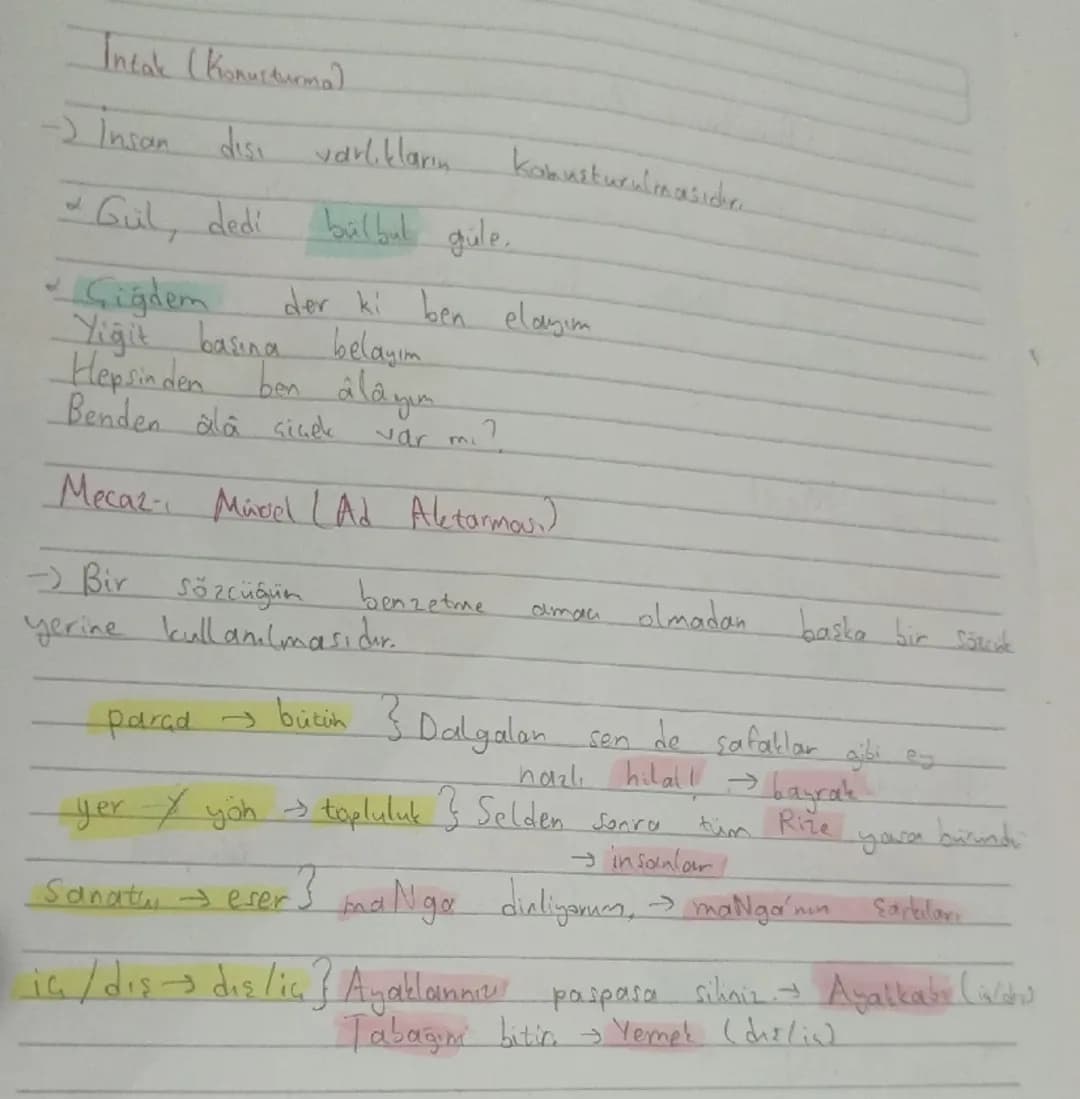 İntak (Konuşturma)
→ İnsan dışı varlıkların konuşturulmasıdır.
Gül, dedi bülbül güle.
Çiğdem der ki ben elayım
Yiğit başına belayım
Hepsinden ben âlâyım
Benden âlâ çiçek var mı?
Mecaz-ı Mürsel (Ad Aktarması)
→ Bir sözcüğün benzetme amacı olmadan başka bir sözcük
yerine kullanılmasıdır.
parça → bütün } Dalgalan sen de şafaklar gibi ey
nazlı hilal! → bayrak
yer / yön → topluluk } Selden sonra tüm Rize yasa büründü
→ insanlar
Sanatçı → eser } maNga dinliyorum, → maNga'nın şarkıları
iç/dış → dış/iç } Ayaklarınızı paspasa siliniz. → Ayakkabı (iç/dış)
Tabağını bitir → Yemek (dış/iç)